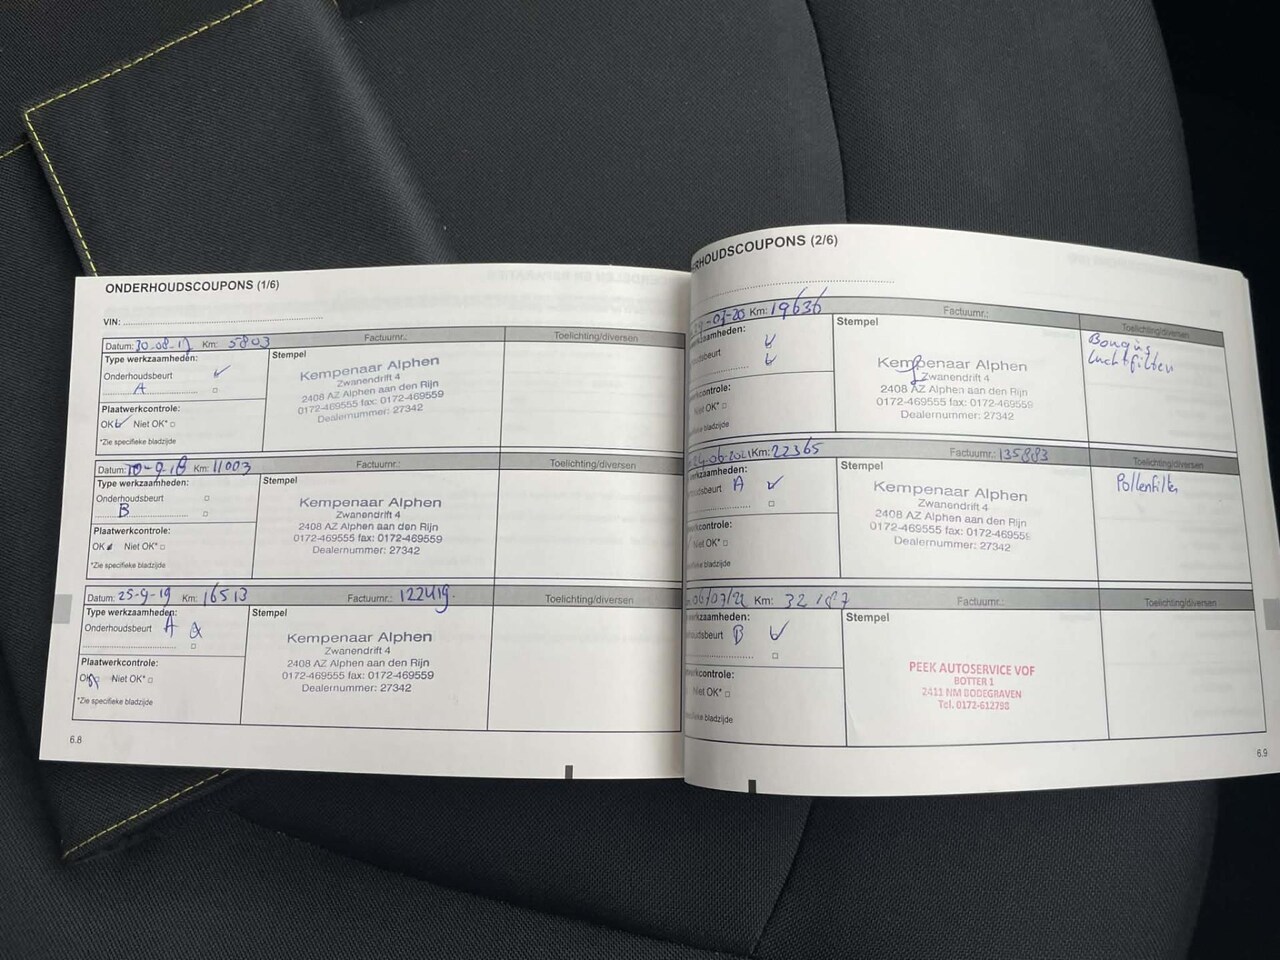 ONDERHOUDSCOUPONS (1/6)
VIN:
Datum: 30-08-17 Km: 5803 Factuurnr.: Toelichting/diversen
Type werkzaamheden:
Onderhoudsbeurt
A
Plaatwerkcontrole:
OK Niet OK*
*Zie specifieke bladzijde
Stempel
Kempenaar Alphen
Zwanendrift 4
2408 AZ Alphen aan den Rijn
0172-469555 fax: 0172-469559
Dealernummer: 27342
Datum: 10-9-18 Km: 11003 Factuurnr.: Toelichting/diversen
Type werkzaamheden:
Onderhoudsbeurt
B
Plaatwerkcontrole:
OK Niet OK*
*Zie specifieke bladzijde
Stempel
Kempenaar Alphen
Zwanendrift 4
2408 AZ Alphen aan den Rijn
0172-469555 fax: 0172-469559
Dealernummer: 27342
Datum: 25-9-19 Km: 16513 Factuurnr.: 122419. Toelichting/diversen
Type werkzaamheden:
Onderhoudsbeurt A
Plaatwerkcontrole:
OK Niet OK*
*Zie specifieke bladzijde
Stempel
Kempenaar Alphen
Zwanendrift 4
2408 AZ Alphen aan den Rijn
0172-469555 fax: 0172-469559
Dealernummer: 27342
6.8
ERHOUDSCOUPONS (2/6)
-07-20 Km: 19636 Factuurnr.: Toelichting/diversen
erkzaamheden:
oudsbeurt
kcontrole:
Niet OK*
bladzijde
Stempel
Kempenaar Alphen
Zwanendrift 4
2408 AZ Alphen aan den Rijn
0172-469555 fax: 0172-469559
Dealernummer: 27342
Bougies
Luchtfilter
24-06-2021 Km: 22365 Factuurnr.: 135883 Toelichting/diversen
erkzaamheden:
houdsbeurt A
erkcontrole:
Niet OK*
bladzijde
Stempel
Kempenaar Alphen
Zwanendrift 4
2408 AZ Alphen aan den Rijn
0172-469555 fax: 0172-469559
Dealernummer: 27342
Pollenfilter
06/07/22 Km: 32187 Factuurnr.: Toelichting/diversen
erkzaamheden:
houdsbeurt B
erkcontrole:
Niet OK*
bladzijde
Stempel
PEEK AUTOSERVICE VOF
BOTTER 1
2411 NM BODEGRAVEN
Tel. 0172-612798
6.9